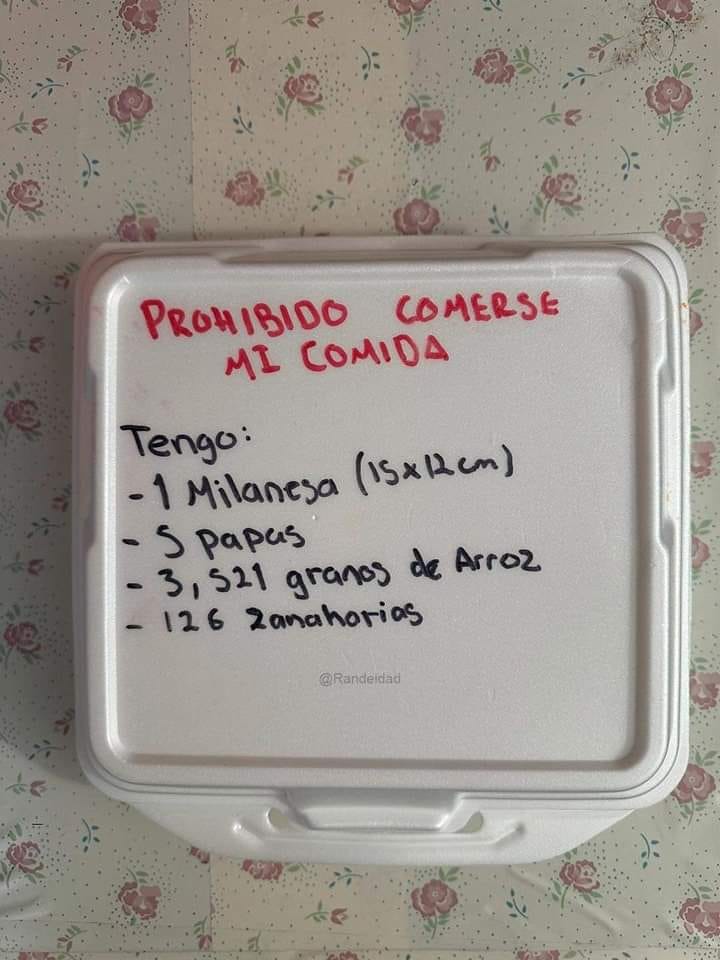 PROHIBIDO COMERSE
MI COMIDA
Tengo:
- 1 Milanesa (15x12cm)
- 5 papas
- 3,521 granos de Arroz
- 126 Zanahorias
@Randeidad